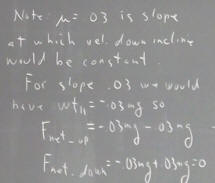 Note: μ = .03 is slope
at which vel. down incline
would be constant.
For slope .03 we would
have wt∥ = -.03 mg so
Fnet-up = -.03mg - .03 mg
Fnet.down = -.03mg + .03mg = 0